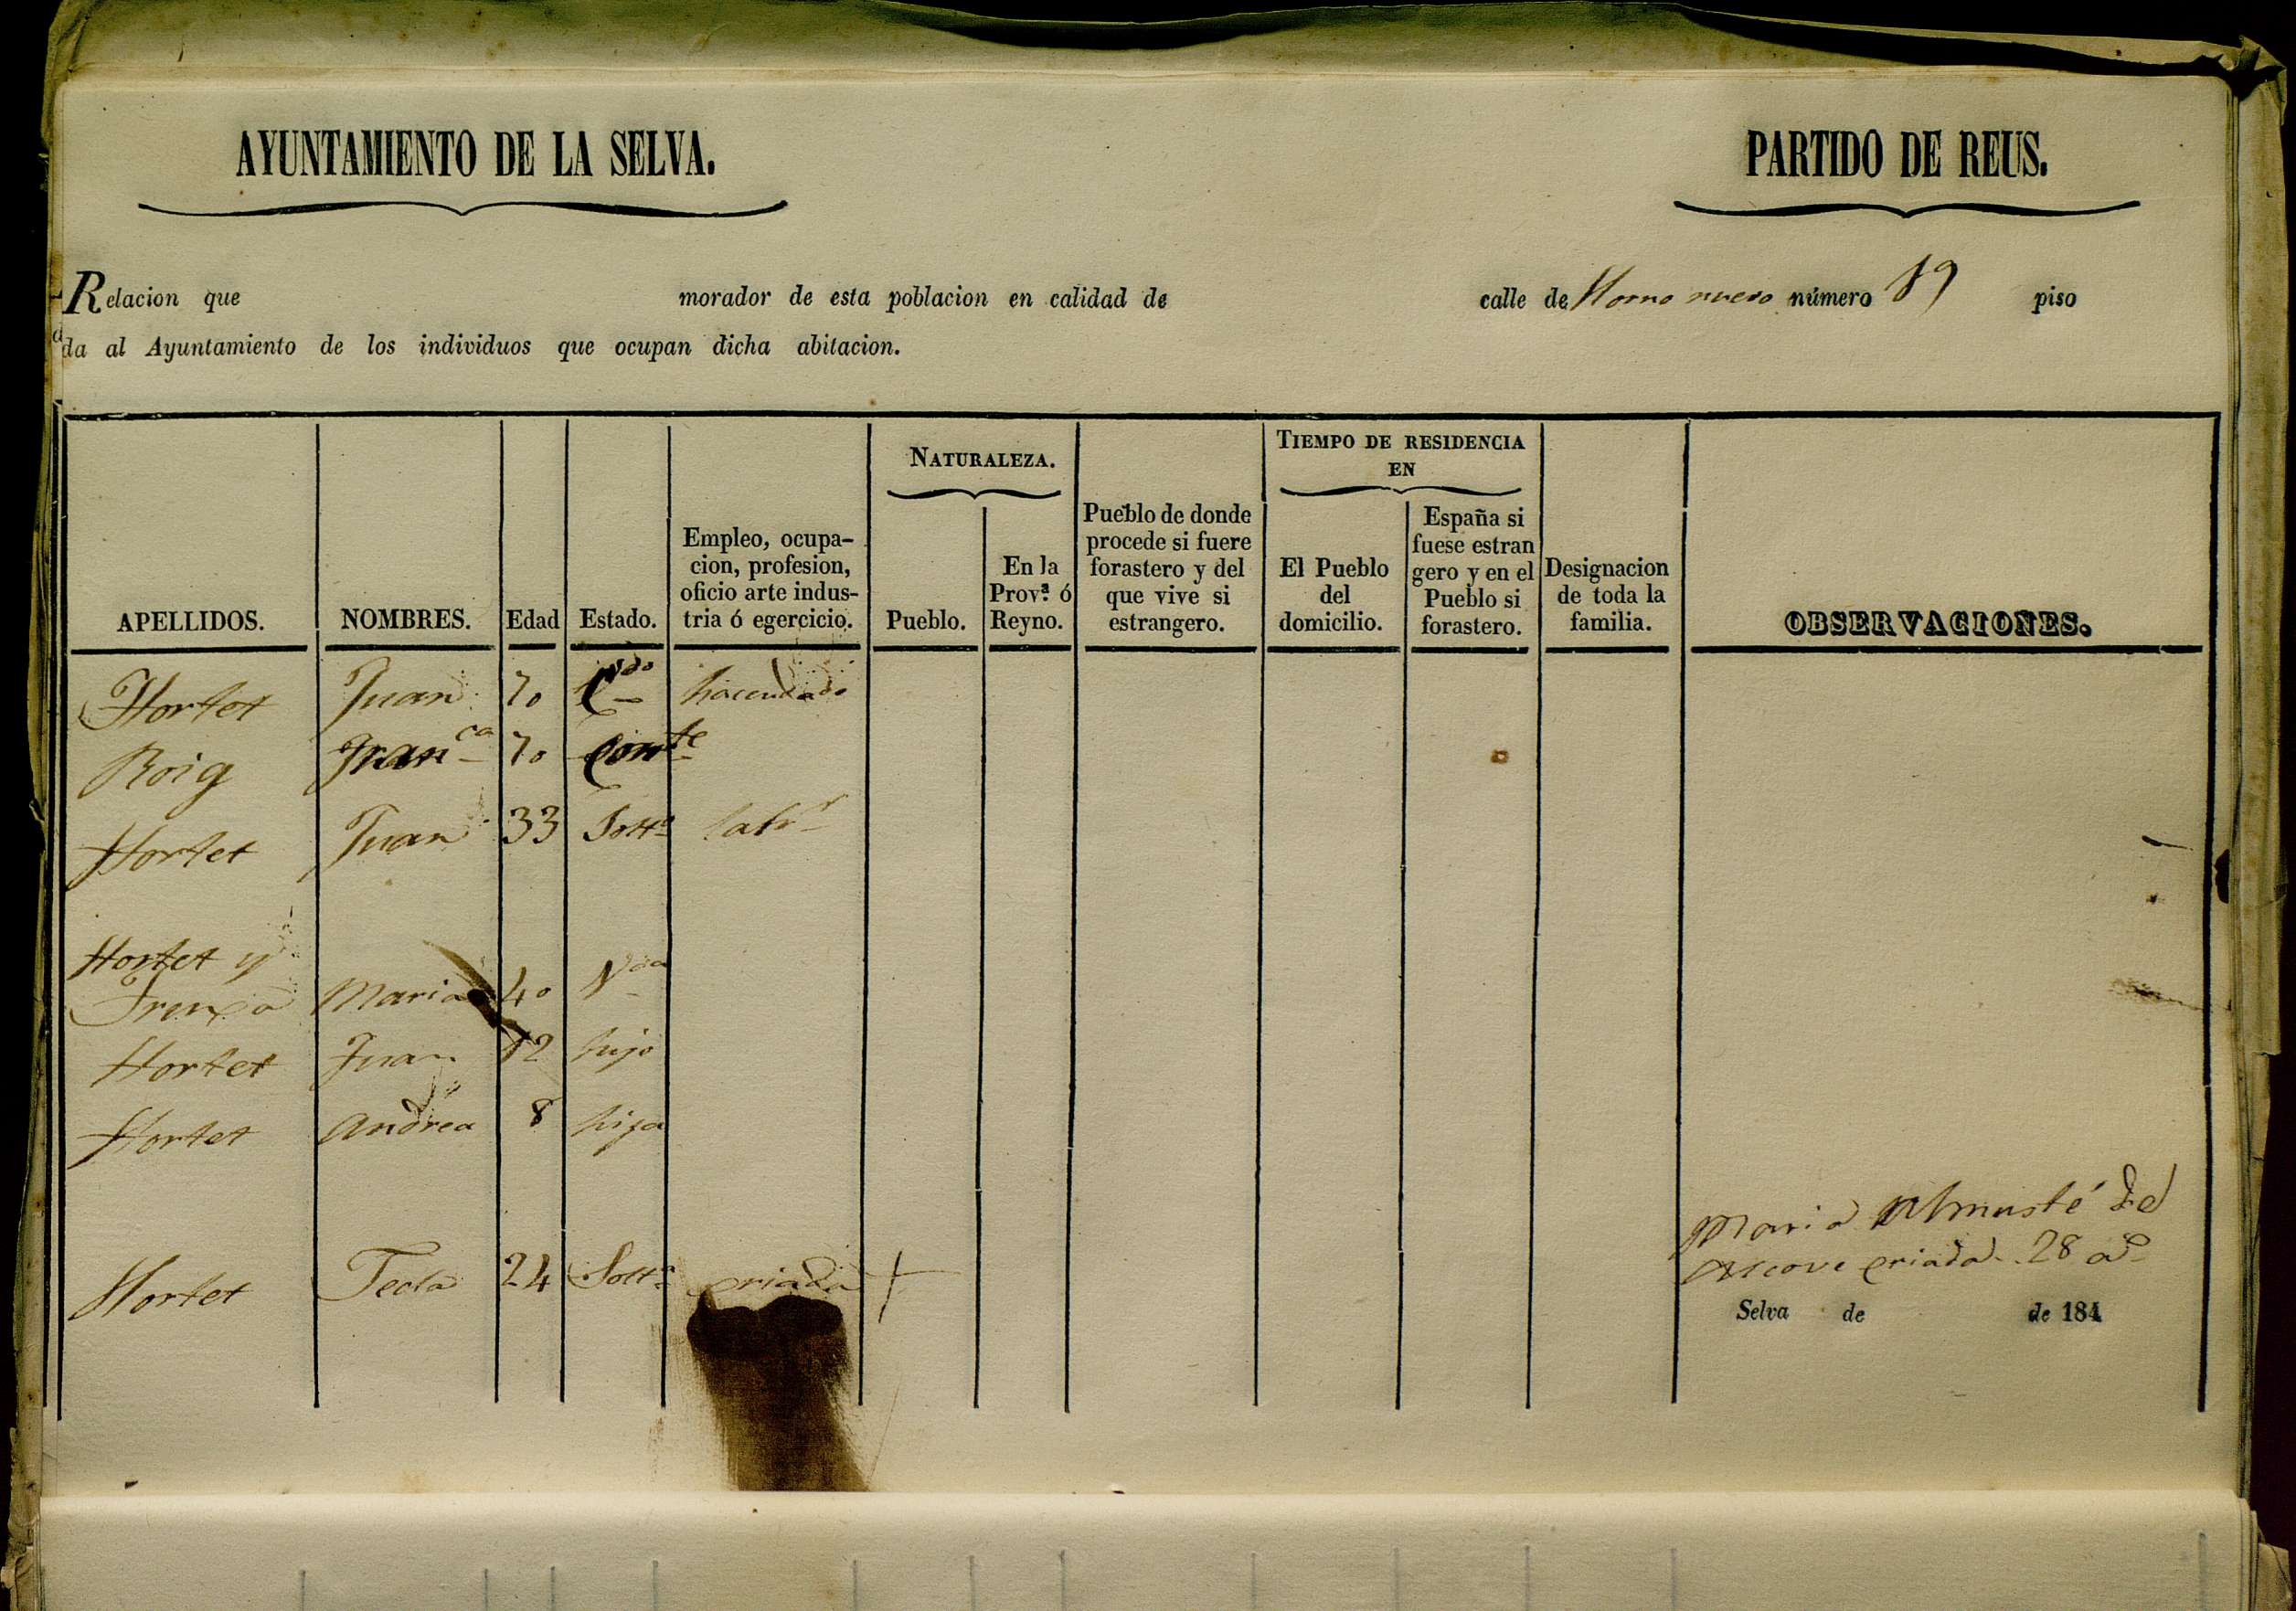 AYUNTAMIENTO DE LA SELVA.
PARTIDO DE REUS.
Relacion que morador de esta poblacion en calidad de calle de Horno nuevo número 89 piso
da al Ayuntamiento de los individuos que ocupan dicha abitacion.
APELLIDOS. NOMBRES. Edad Estado. Empleo, ocupa-
cion, profesion,
oficio arte indus-
tria ó egercicio.
NATURALEZA.
Pueblo. En la
Prov.ª ó
Reyno.
Pueblo de donde
procede si fuere
forastero y del
que vive si
estrangero.
TIEMPO DE RESIDENCIA
EN
El Pueblo
del
domicilio.
España si
fuese estran
gero y en el
Pueblo si
forastero.
Designacion
de toda la
familia.
OBSERVACIONES.
Hortet Juan 70 hacendado
Roig Franca 70 Conte
Hortet Juan 33 Solto labr
Hortet y
Trenxa Maria 40 Vda
Hortet Juan 12 hijo
Hortet Andrea 8 hija
Hortet Tecla 24 Solta criada +
Maria Almusté del
criada 28 as
Selva de de 184